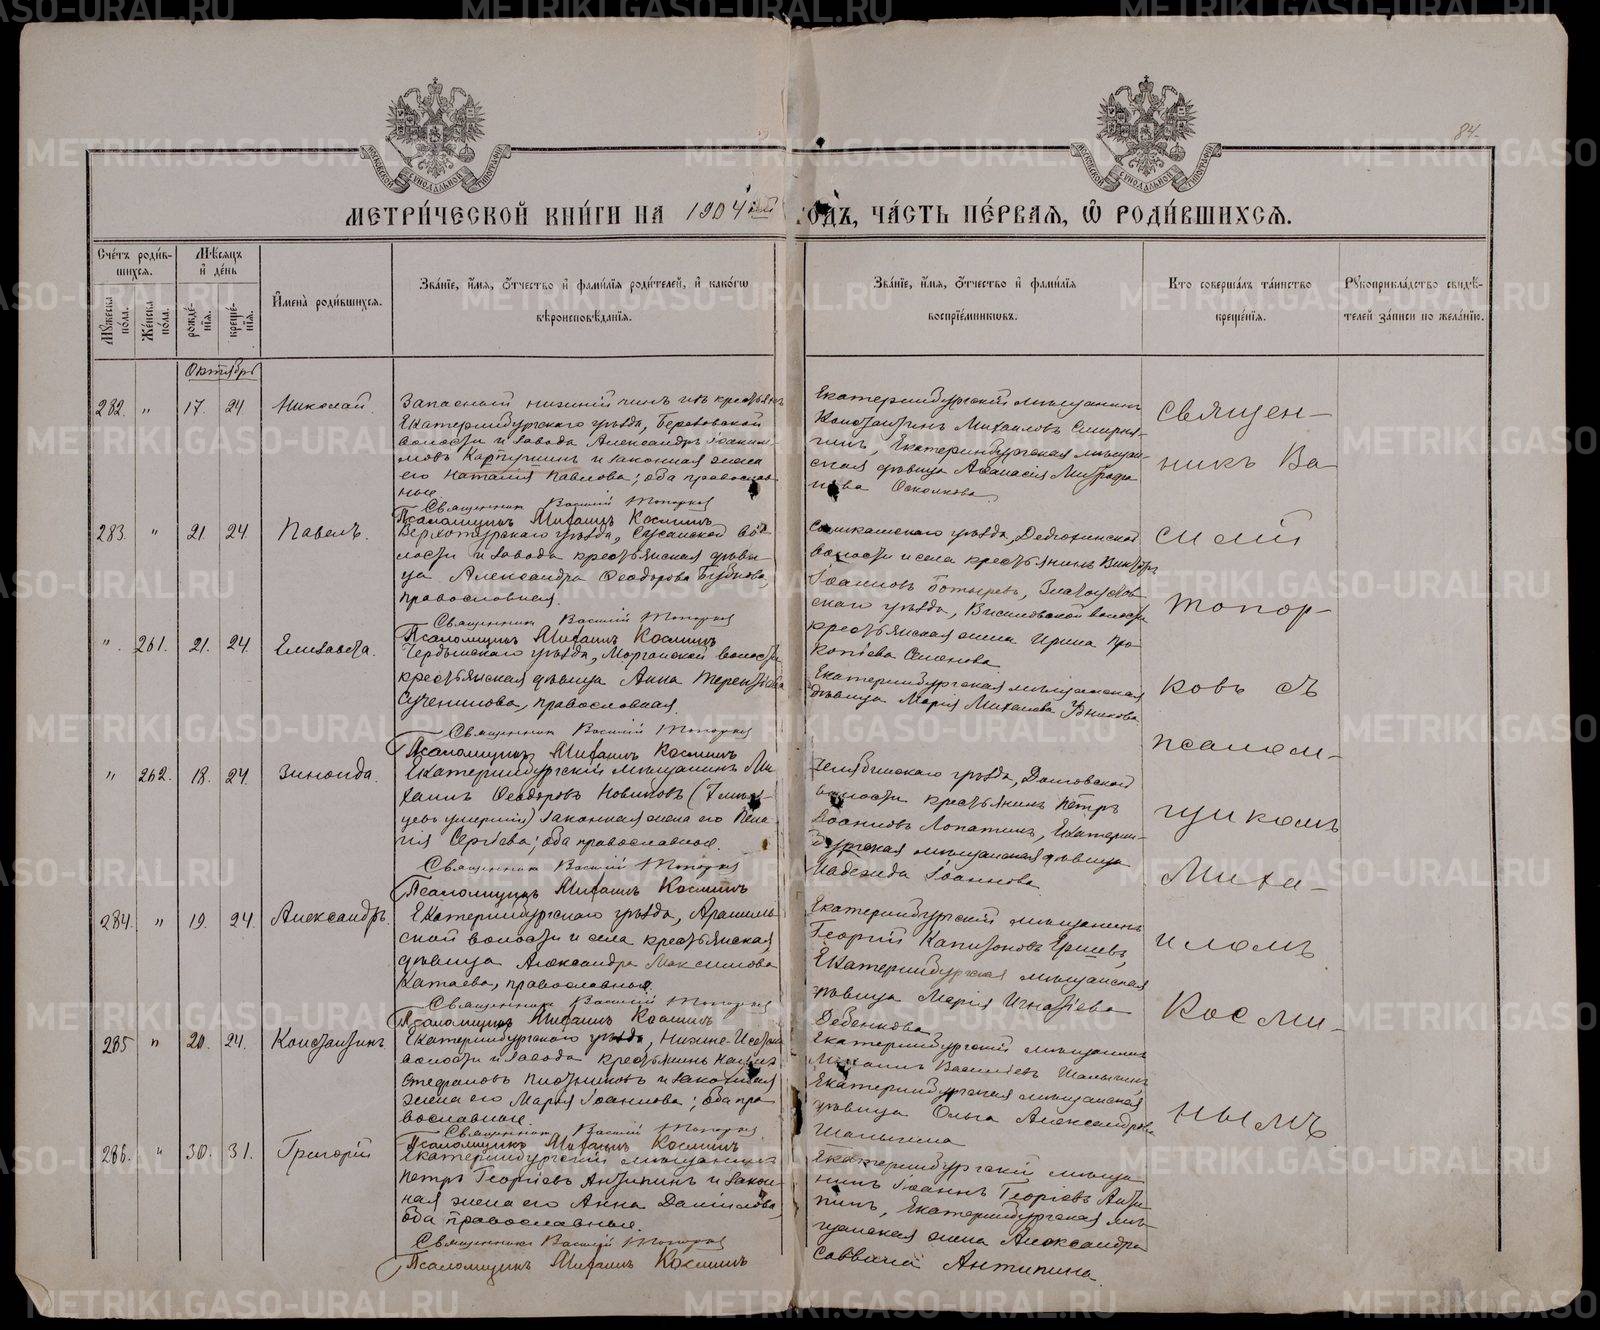 METRIKI.GASO-URAL.RU
84.
МОСКОВСКОЙ СѴНОДАЛЬНОЙ ТИПОГРАФІИ
МОСКОВСКОЙ СѴНОДАЛЬНОЙ ТИПОГРАФІИ
МЕТРИ́ЧЕСКОЙ КНИ́ГИ НА 1904 й ГОДЪ, ЧА́СТЬ ПЕ́РВАЯ, Ѡ РОДИ́ВШИХСЯ.
Сче́тъ роди́вшихся.
Мужеска по́ла.
Же́нска по́ла.
Мѣ́сяцъ и҆ де́нь
рожде́нїя.
креще́нїя.
И҆мена̀ роди́вшихся.
Зва́нїе, и҆́мя, ѻ҆́тчество и҆ фами́лїя роди́телей, и҆ како́гѡ вѣроисповѣ́данїя.
Зва́нїе, и҆́мя, ѻ҆́тчество и҆ фами́лїя воспрїе́мникѡвъ.
Кто̀ соверша́лъ та́инство креще́нїя.
Рꙋкоприкла́дство свидѣ́телей за́писи по жела́нїю.
Октябрь
282. " 17. 24 Николай.
Запасный нижній чинъ изъ крестьянъ
Екатеринбургскаго уѣзда, Березовской
волости и завода Александръ Іоаким-
мовъ Карпушинъ и законная жена
его Наталія Павлова; оба православ-
ные.
Священникъ Василій Топорков
Псаломщикъ Михаилъ Косминъ
Екатеринбургскій мѣщанинъ
Константинъ Михаиловъ Смирня-
гинъ, Екатеринбургская мѣщан-
ская дѣвица Афанасія Митрофа
нова Осколкова.
283. " 21. 24 Павелъ.
Верхотурскаго уѣзда, Сусанской во-
лости и завода крестьянская дѣви-
ца Александра Ѳеодорова Бубнова,
православная.
Священникъ Василій Топорков
Псаломщикъ Михаилъ Косминъ
Соликамскаго уѣзда, Дедюхинской
волости и села крестьянинъ Викторъ
Іоанновъ Ботыревъ, Златоустов
скаго уѣзда, волости
крестьянская жена Ирина Про-
копіева Семенова
" 261. 21. 24. Елизавета.
уѣзда, волости
крестьянская дѣвица Анна Терентіева
православная.
Священникъ Василій Топорков
Псаломщикъ Михаилъ Косминъ
Екатеринбургская мѣщанская
дѣвица Марія Михаилова
" 262. 18. 24. Зинаида.
Екатеринбургскій мѣщанинъ Ми-
хаилъ Ѳеодоровъ Новиковъ (
умершій) законная жена его Пела-
гія Сергіева; оба православные.
Священникъ Василій Топорков
Псаломщикъ Михаилъ Косминъ
Челябинскаго уѣзда, Долговской
волости крестьянинъ Петръ
Іоанновъ Лопатинъ, Екатерин-
бургская мѣщанская дѣвица
Надежда Іоаннова
284. " 19. 24. Александръ.
Екатеринбургскаго уѣзда, Арамиль-
ской волости и села крестьянская
дѣвица Александра Максимова
Катаева, православные.
Священникъ Василій Топорков
Псаломщикъ Михаилъ Косминъ
Екатеринбургскій мѣщанинъ
Георгій Капитоновъ Ершевъ,
Екатеринбургская мѣщанская
дѣвица Марія Игнатіева
Дебенкова
285 " 20. 24. Константинъ
Екатеринбургскаго уѣзда, Нижне-Исетской
волости и завода крестьянинъ
Стефановъ Плотниковъ и законная
жена его Марія Іоаннова; оба пра-
вославные.
Священникъ Василій Топорков
Псаломщикъ Михаилъ Косминъ
Екатеринбургскій мѣщанинъ
Михаилъ Васильевъ Шалыгинъ,
Екатеринбургская мѣщанская
дѣвица Ольга Александрова
Шалыгина
286. " 30. 31. Григорій
Екатеринбургскій мѣщанинъ
Петръ Георгіевъ Антипинъ и закон-
ная жена его Анна Даніилова,
оба православные.
Священникъ Василій Топорков
Псаломщикъ Михаилъ Косминъ
Екатеринбургскій мѣща
нинъ Іоаннъ Георгіевъ Анти-
пинъ, Екатеринбургская мѣ-
щанская жена Александра
Саввина Антипина.
Священ-
никъ Ва
силій
Топор-
ковъ съ
псалом-
щикомъ
Миха-
иломъ
Косми-
нымъ